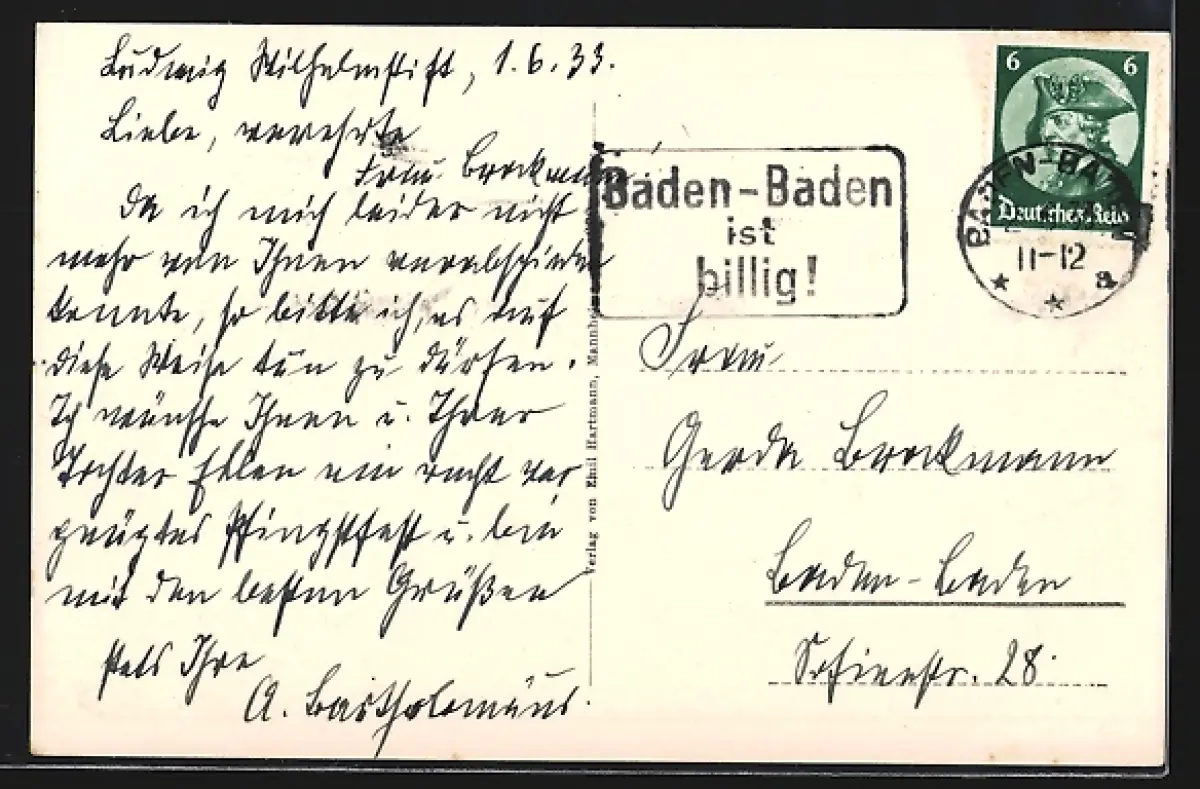 Ludwig Wilhelmstift, 1.6.33.
Liebe, verehrte
Frau Brockmann,
Da ich mich leider nicht
mehr von Ihnen verabschieden
konnte, so bitte ich, es auf
diese Weise tun zu dürfen.
Ich wünsche Ihnen u. Ihrer
Tochter Ellen ein recht ver
gnügtes Pfingstfest u. bin
mit den besten Grüßen
stets Ihre
A. Bartholomäus.
Verlag von Emil Hartmann, Mannheim
Baden-Baden
ist
billig!
6 6
Deutsches Reich
BADEN-BADEN
11-12
a
Frau
Gerda Brockmann
Baden-Baden
Sofienstr. 28.